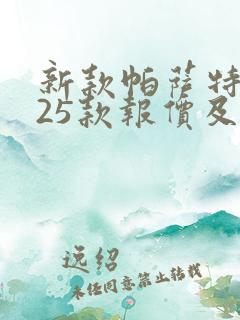 新款帕萨特
25款報價及
逸绍
未经同意禁止转载